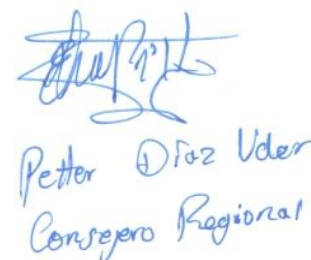 Petter Díaz Uder
Consejero Regional